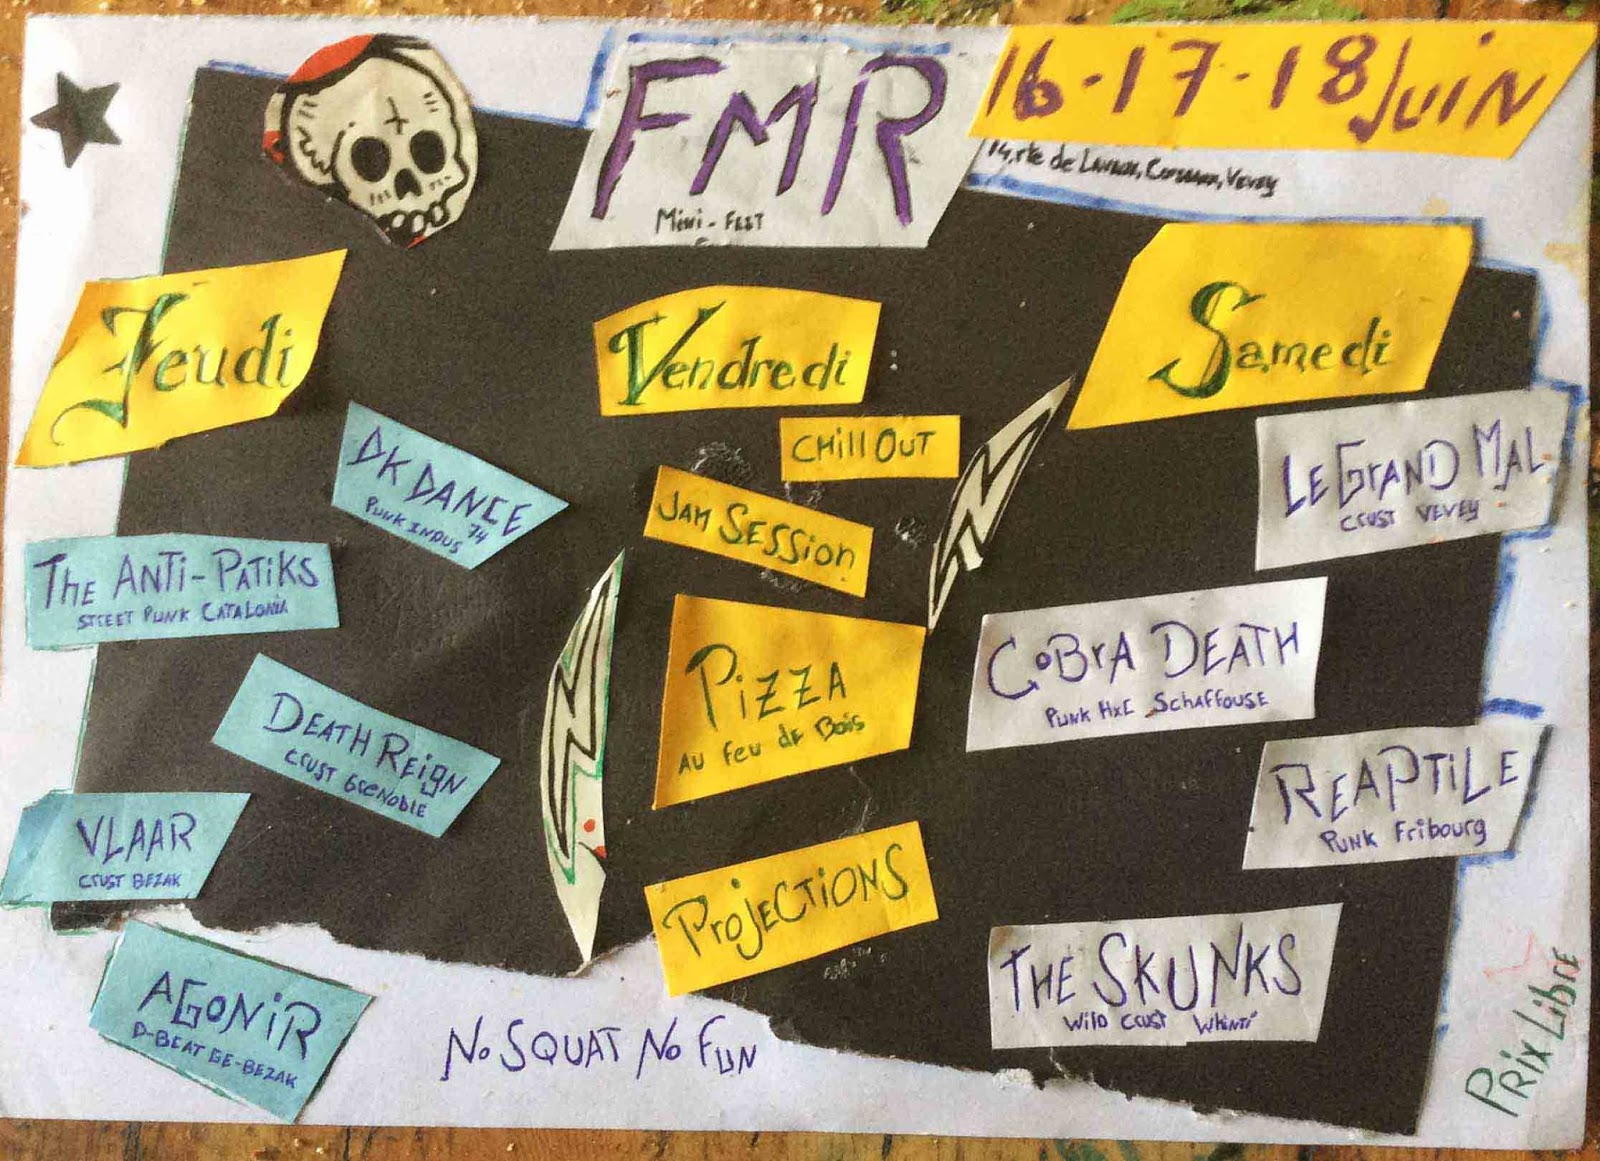 FMR
Mini-Fest
16-17-18 Juin
14, rte de Lavaux, Corseaux, Vevey
Jeudi
DK DANCE
PUNK INDUS 74
THE ANTI-PATIKS
STREET PUNK CATALONIA
DEATH REIGN
CRUST GRENOBLE
VLAAR
CRUST BEZAK
AGONIR
D-BEAT GE-BEZAK
Vendredi
CHill OUT
JAM SESSion
PiZZA
AU feu de Bois
PROJECTIONS
Samedi
LE GRAND MAL
CRUST VEVEY
COBRA DEATH
PUNK HxC SCHAFFOUSE
REAPTILE
PUNK Fribourg
THE SKUNKS
Wild CRUST
No SQUAT No FUN
PRIX LIBRE